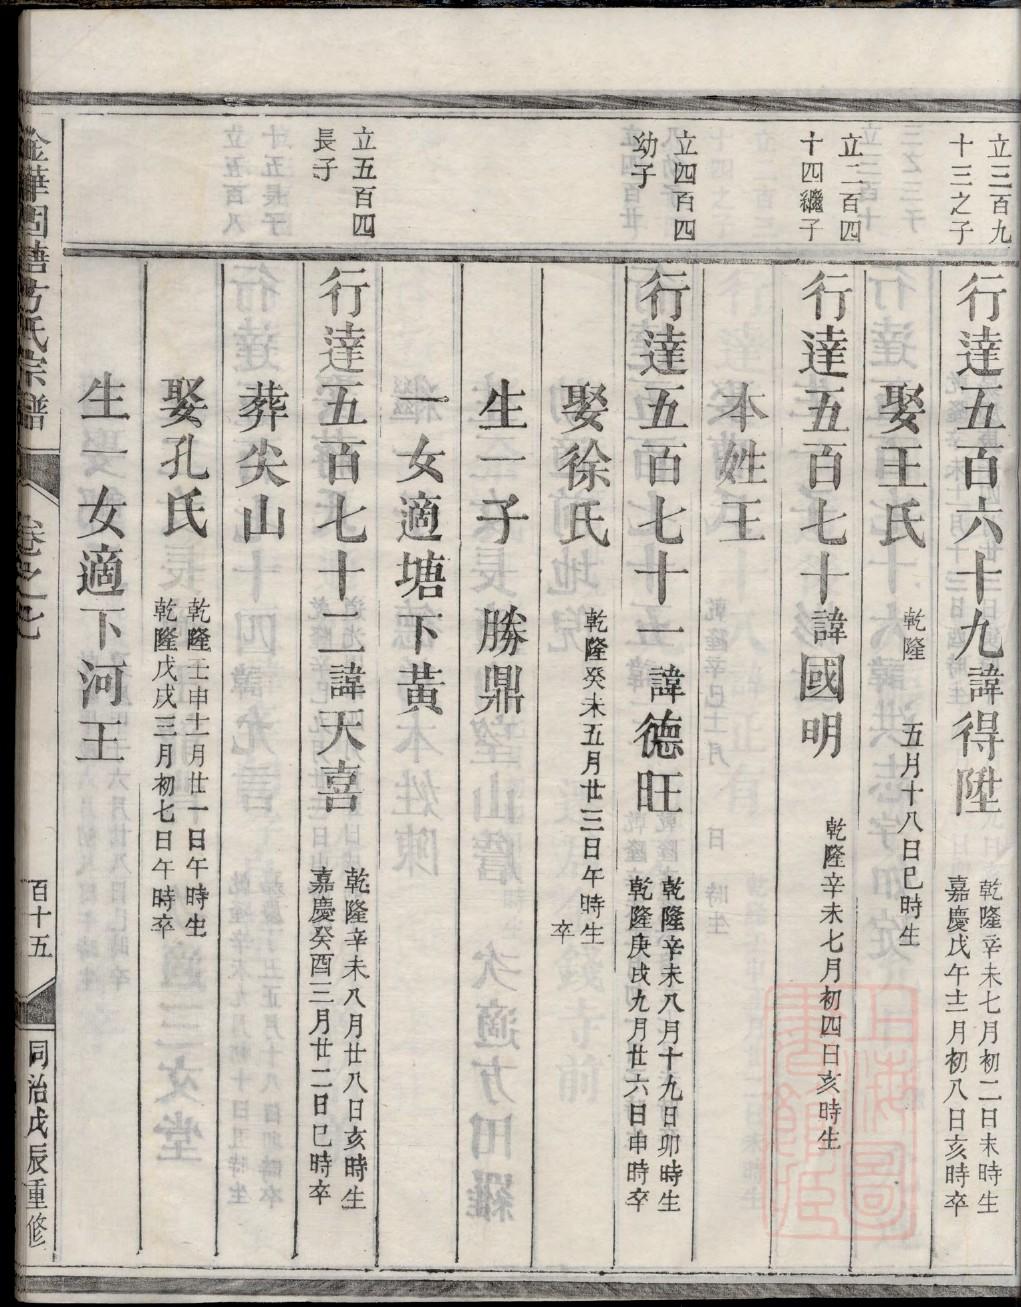 立三百九
十三之子
行達五百六十九諱得陞
乾隆辛未七月初二日未時生
嘉慶戊午十二月初八日亥時卒
娶王氏
乾隆　五月十八日巳時生
立二百四
十四繼子
行達五百七十諱國明
乾隆辛未七月初四日亥時生
本姓王
立四百四
幼子
行達五百七十一諱德旺
乾隆辛未八月十九日卯時生
乾隆庚戌九月廿六日申時卒
娶徐氏
乾隆癸未五月廿三日午時生
卒
生一子　勝鼎
一女適塘下黃
立五百四
長子
行達五百七十二諱天喜
乾隆辛未八月廿八日亥時生
嘉慶癸酉三月廿二日巳時卒
葬尖山
娶孔氏
乾隆壬申十一月廿一日午時生
乾隆戊戌三月初七日午時卒
生一女適下河王
金華固塘方氏宗譜
卷之七
百十五
同治戊辰重修